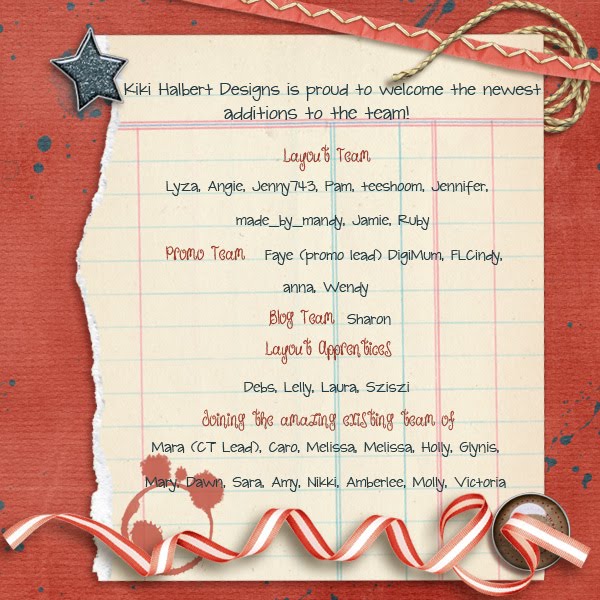 Kiki Halbert Designs is proud to welcome the newest
additions to the team!
Layout Team
Lyza, Angie, Jenny743, Pam, teeshoom, Jennifer,
made_by_mandy, Jamie, Ruby
Promo Team Faye (promo lead) DigiMum, FLCindy,
anna, Wendy
Blog Team Sharon
Layout Apprentices
Debs, Lelly, Laura, Sziszi
Joining the amazing existing team of
Mara (CT Lead), Caro, Melissa, Melissa, Holly, Glynis,
Mary, Dawn, Sara, Amy, Nikki, Amberlee, Molly, Victoria